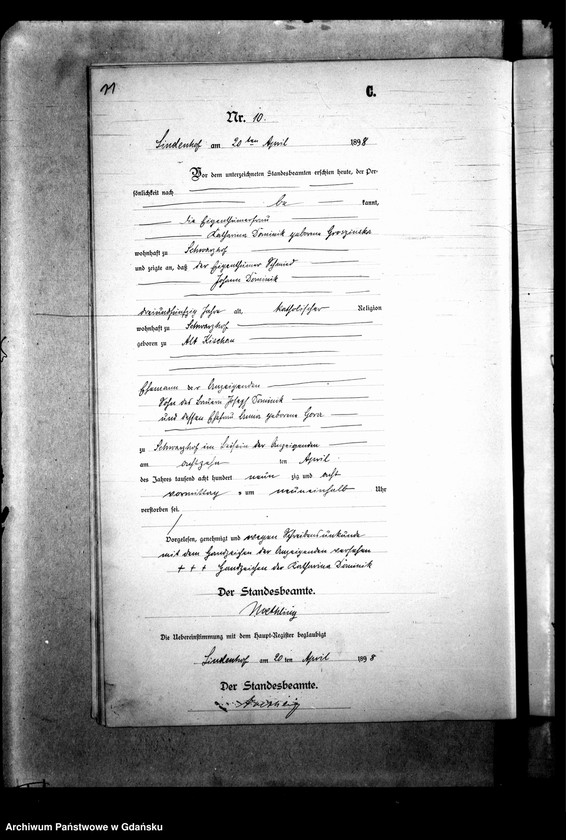 11
C.
Nr. 10.
Lindenhof am 20ten April 1898
Vor dem unterzeichneten Standesbeamten erschien heute, der Per-
sönlichkeit nach
be kannt,
die Eigenthümerfrau
Katharina Dominik geborene
wohnhaft zu Schwarzhof
und zeigte an, daß der Eigenthümer
Johann Dominik
dreiundfünfzig Jahre alt, katholischer Religion
wohnhaft zu Schwarzhof
geboren zu Alt Kischau
Ehemann der Anzeigenden
Sohn des Bauern Josef Dominik
und dessen Ehefrau Anna geborene Gora
zu Schwarzhof im Beisein der Anzeigenden
am achtzehn ten April
des Jahres tausend acht hundert neun zig und acht
vormittag s um neuneinhalb Uhr
verstorben sei.
Vorgelesen, genehmigt und wegen Schreibensunkunde
mit dem Handzeichen der Anzeigenden versehen
+ + + Handzeichen der Katharina Dominik
Der Standesbeamte.
Die Uebereinstimmung mit dem Haupt-Register beglaubigt
Lindenhof am 20 ten April 1898
Der Standesbeamte.
Archiwum Państwowe w Gdańsku